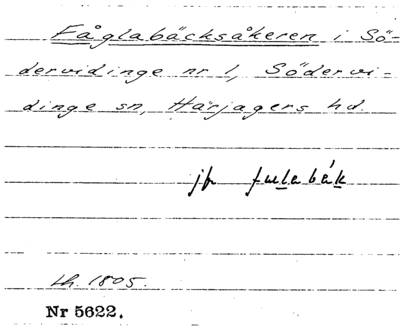 Fåglabäcksåkeren i Sö-
dervidinge nr 1, Södervi-
dinge sn, Härjagers hd
jfr fuula bäk
Lh. 1805.
Nr 5622.